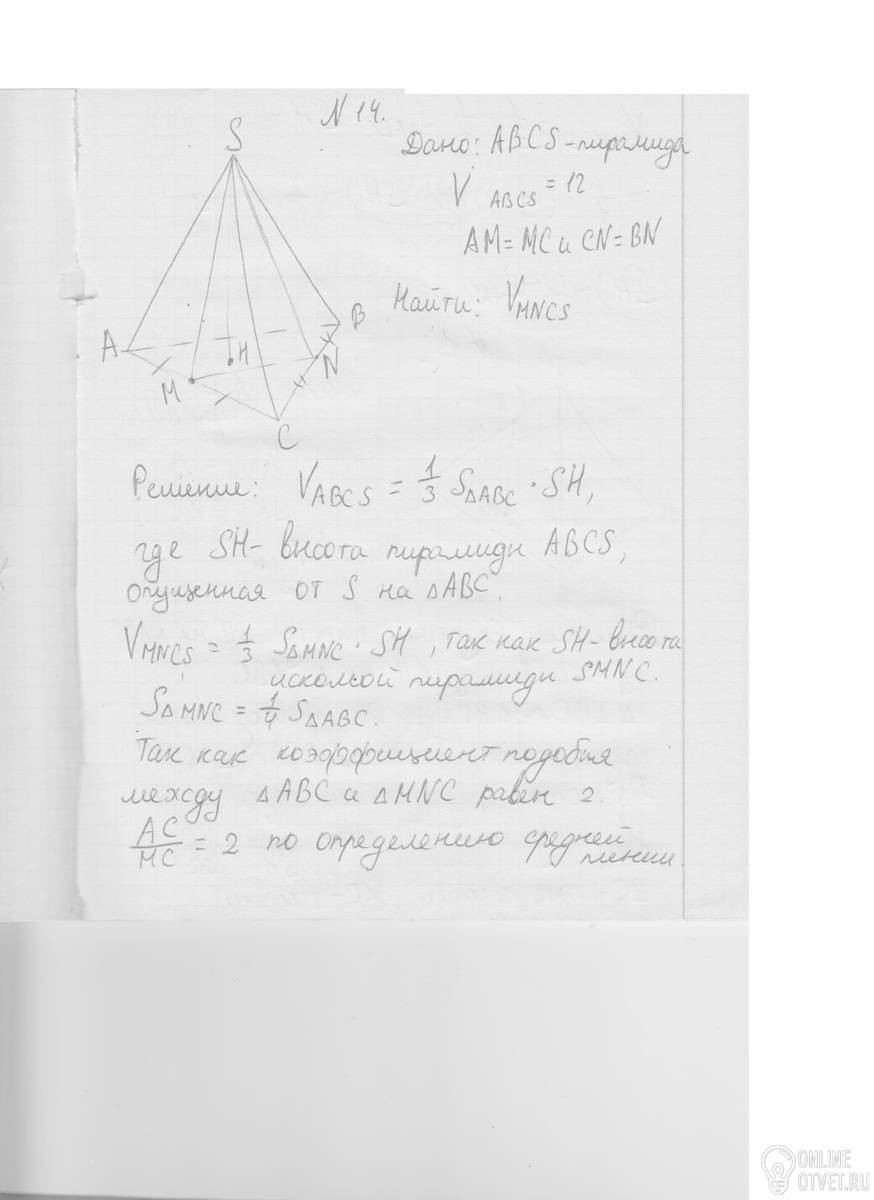 N 14.
S
Дано: ABCS - пирамида
V ABCS = 12
AM = MC и CN = BN
Найти: V MNCS
A
B
H
M
N
C
Решение: V ABCS = 1/3 S△ABC · SH,
где SH - высота пирамиды ABCS,
опущенная от S на △ABC.
V MNCS = 1/3 S△MNC · SH, так как SH - высота
искомой пирамиды SMNC.
S△MNC = 1/4 S△ABC.
Так как коэффициент подобия
между △ABC и △MNC равен 2.
AC/MC = 2 по определению средней
линии.
ONLINE
OTVET.RU